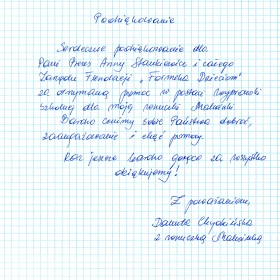 Podziękowanie
Serdeczne podziękowanie dla
Pani Prezes Anny Stankiewicz i całego
Zarządu Fundacji „Formoza Dzieciom"
za otrzymaną pomoc w postaci wyprawki
szkolnej dla mojej wnuczki Malwinki
Bardzo cenimy sobie Państwa dobroć,
zaangażowanie i chęć pomocy.
Raz jeszcze bardzo gorąco za wszystko
dziękujemy!
Z poważaniem,
Danuta
z wnuczką Malwinką